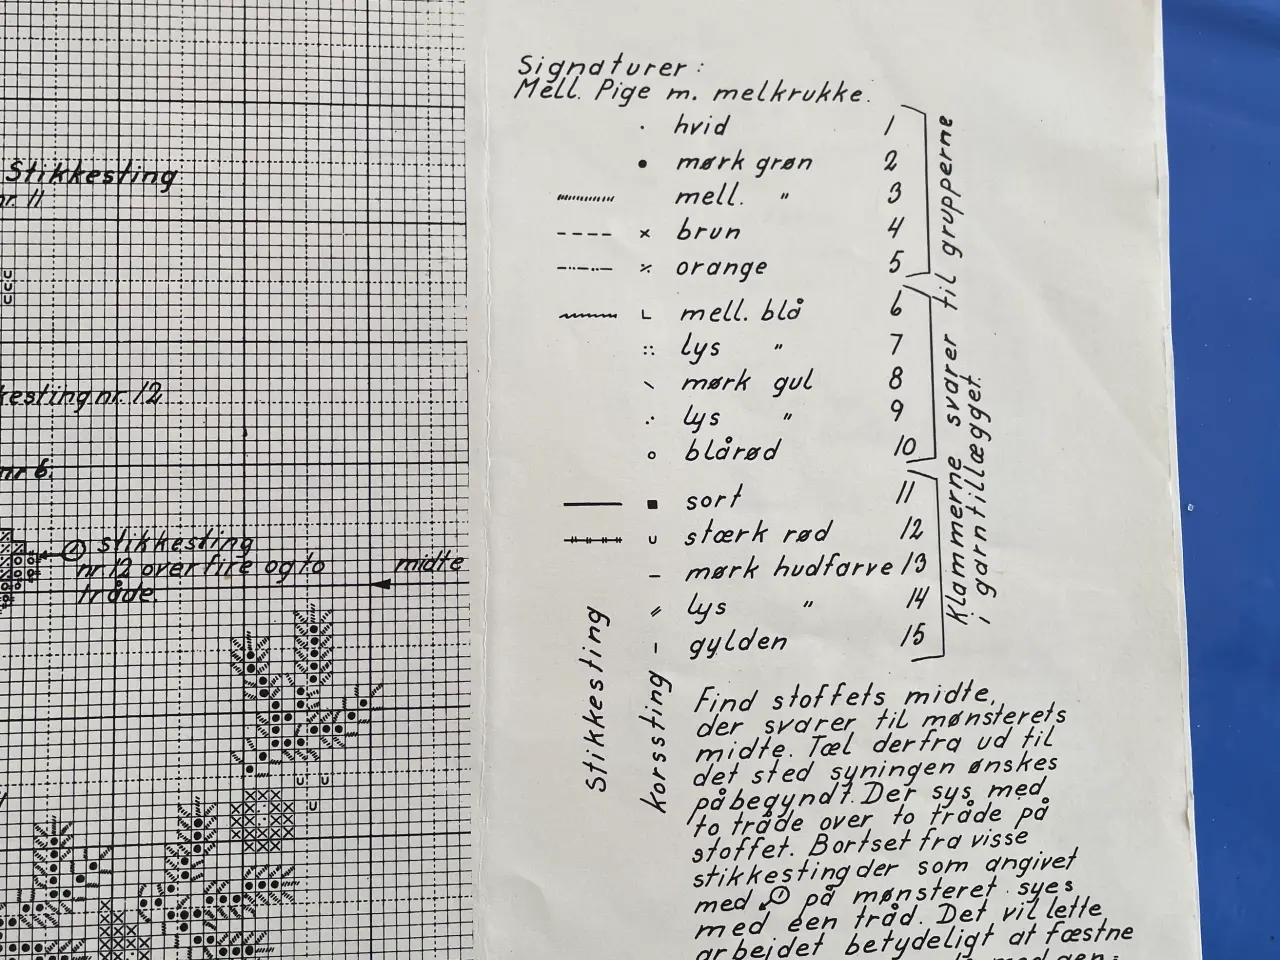 Stikkesting
nr. 11
nr. 12
nr 6.
stikkesting
nr 12 over fire og to
tråde.
midte
Signaturer:
Mell. Pige m. melkrukke.
hvid 1
mørk grøn 2
mell. " 3
brun 4
orange 5
mell. blå 6
lys " 7
mørk gul 8
lys " 9
blårød 10
sort 11
stærk rød 12
mørk hudfarve 13
lys " 14
gylden 15
Stikkesting
Korssting
Klammerne svarer til grupperne
i garntillægget.
Find stoffets midte,
der svarer til mønsterets
midte. Tæl derfra ud til
det sted syningen ønskes
påbegyndt. Der sys med
to tråde over to tråde på
stoffet. Bortset fra visse
stikkesting der som angivet
med på mønsteret syes
med een tråd. Det vil lette
arbejdet betydeligt at fæstne